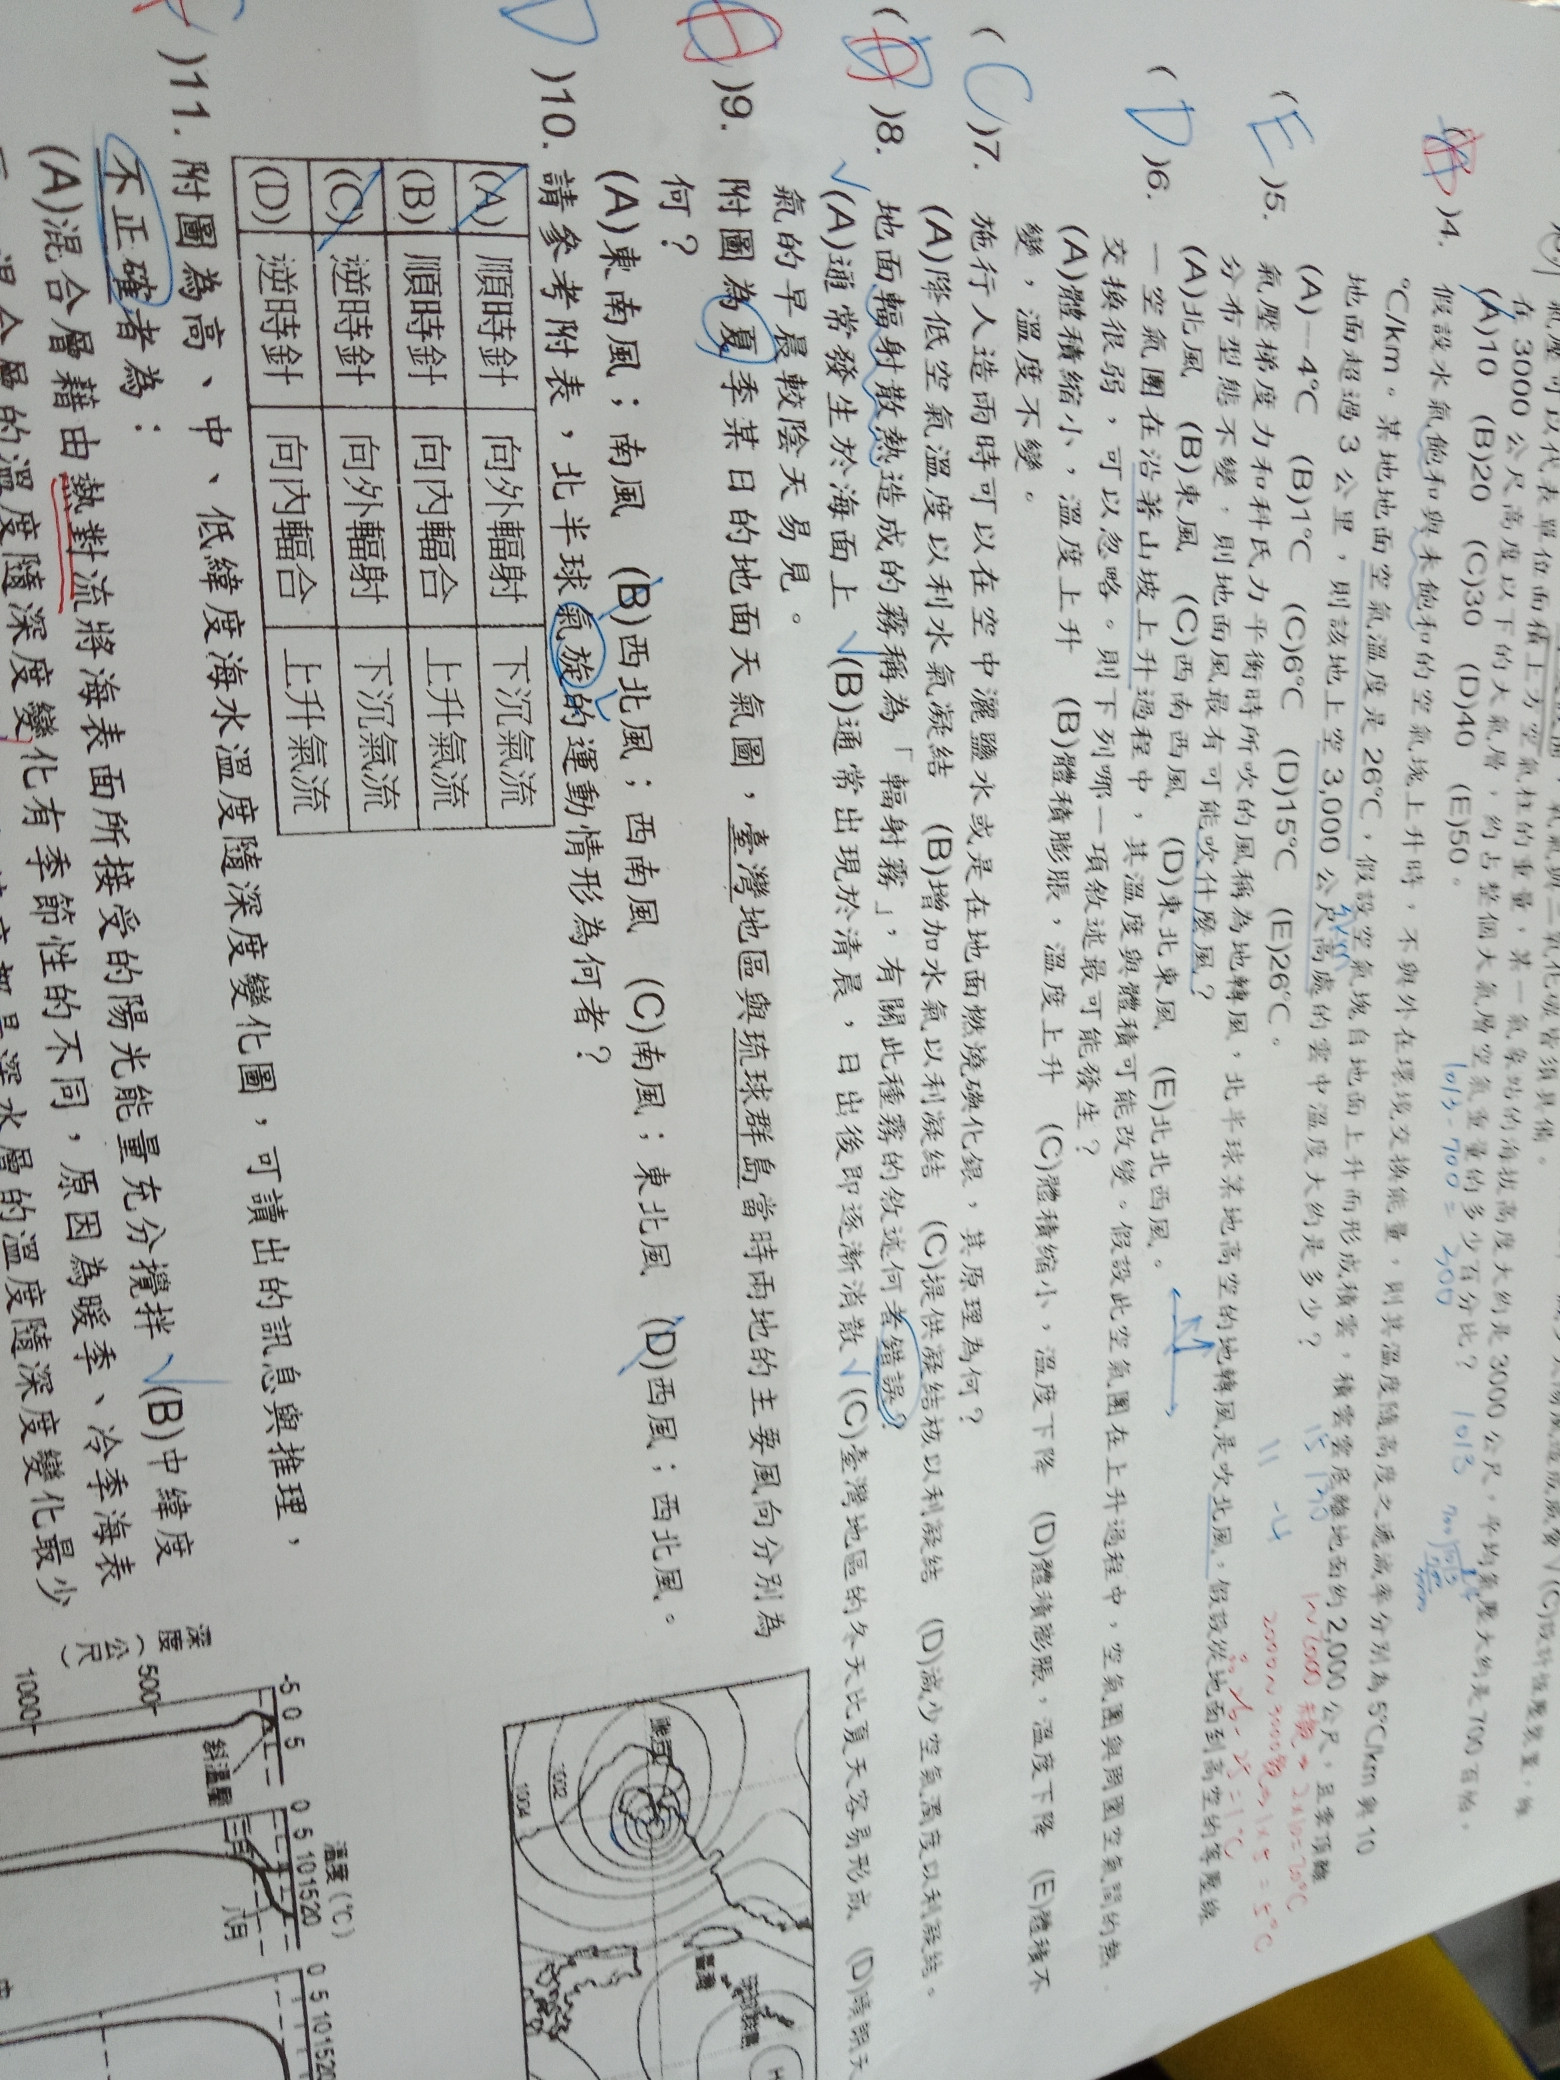 在 3000 公尺高度以下的大氣層,約占整個大氣層空氣重量的多少百分比?
(A)10 (B)20 (C)30 (D)40 (E)50。
1013-700=300
1013
)4. 假設水氣飽和與未飽和的空氣塊上升時,不與外在環境交換能量,則其溫度隨高度之遞減率分別為 5℃/km 與 10
℃/km。某地地面空氣溫度是 26℃,假設空氣塊自地面上升而形成積雲,積雲雲底離地面約 2,000 公尺,且雲頂離
地面超過 3 公里,則該地上空 3,000 公尺高處的雲中溫度大約是多少?
(A)-4℃ (B)1℃ (C)6℃ (D)15℃ (E)26℃。
(E)5. 氣壓梯度力和科氏力平衡時所吹的風稱為地轉風,北半球某地高空的地轉風是吹北風,假設從地面到高空的等壓線
分布型態不變,則地面風最有可能吹什麼風?
(A)北風 (B)東風 (C)西南西風 (D)東北東風 (E)北北西風。
(D)6. 一空氣團在沿著山坡上升過程中,其溫度與體積可能改變。假設此空氣團在上升過程中,空氣團與周圍空氣間的熱
交換很弱,可以忽略。則下列哪一項敘述最可能發生?
(A)體積縮小,溫度上升 (B)體積膨脹,溫度上升 (C)體積縮小,溫度下降 (D)體積膨脹,溫度下降 (E)體積不
變,溫度不變。
(C)7. 施行人造雨時可以在空中灑鹽水或是在地面燃燒碘化銀,其原理為何?
(A)降低空氣溫度以利水氣凝結 (B)增加水氣以利凝結 (C)提供凝結核以利凝結 (D)減少空氣濕度以利凝結。
)8. 地面輻射散熱造成的霧稱為「輻射霧」,有關此種霧的敘述何者錯誤?
√(A)通常發生於海面上 √(B)通常出現於清晨,日出後即逐漸消散 √(C)臺灣地區的冬天比夏天容易形成 (D)晴朗天
氣的早晨較陰天易見。
)9. 附圖為夏季某日的地面天氣圖,臺灣地區與琉球群島當時兩地的主要風向分別為
何?
(A)東南風;南風 (B)西北風;西南風 (C)南風;東北風 (D)西風;西北風。
1002
1004
臺灣
琉球群島
H
D )10. 請參考附表,北半球氣旋的運動情形為何者?
(A) 順時針 向外輻射 下沉氣流
(B) 順時針 向內輻合 上升氣流
(C) 逆時針 向外輻射 下沉氣流
(D) 逆時針 向內輻合 上升氣流
)11. 附圖為高、中、低緯度海水溫度隨深度變化圖,可讀出的訊息與推理,
不正確者為:
(A)混合層藉由熱對流將海表面所接受的陽光能量充分攪拌 √(B)中緯度
混合層的溫度隨深度變化有季節性的不同,原因為暖季、冷季海表
溫度(℃)
-5 0 5
0 5 101520
0 5 101520
深度(公尺)
500
1000
斜溫層
三月
八月